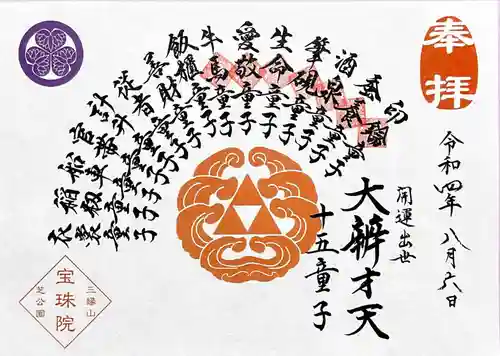 奉拝
令和四年 八月六日
開運出世
大辨才天
十五童子
酒泉童子
筆硯童子
生命童子
愛敬童子
牛馬童子
飯櫃童子
善財童子
従者童子
計升童子
官帯童子
船車童子
稲籾童子
衣裳童子
三縁山
宝珠院
芝公園